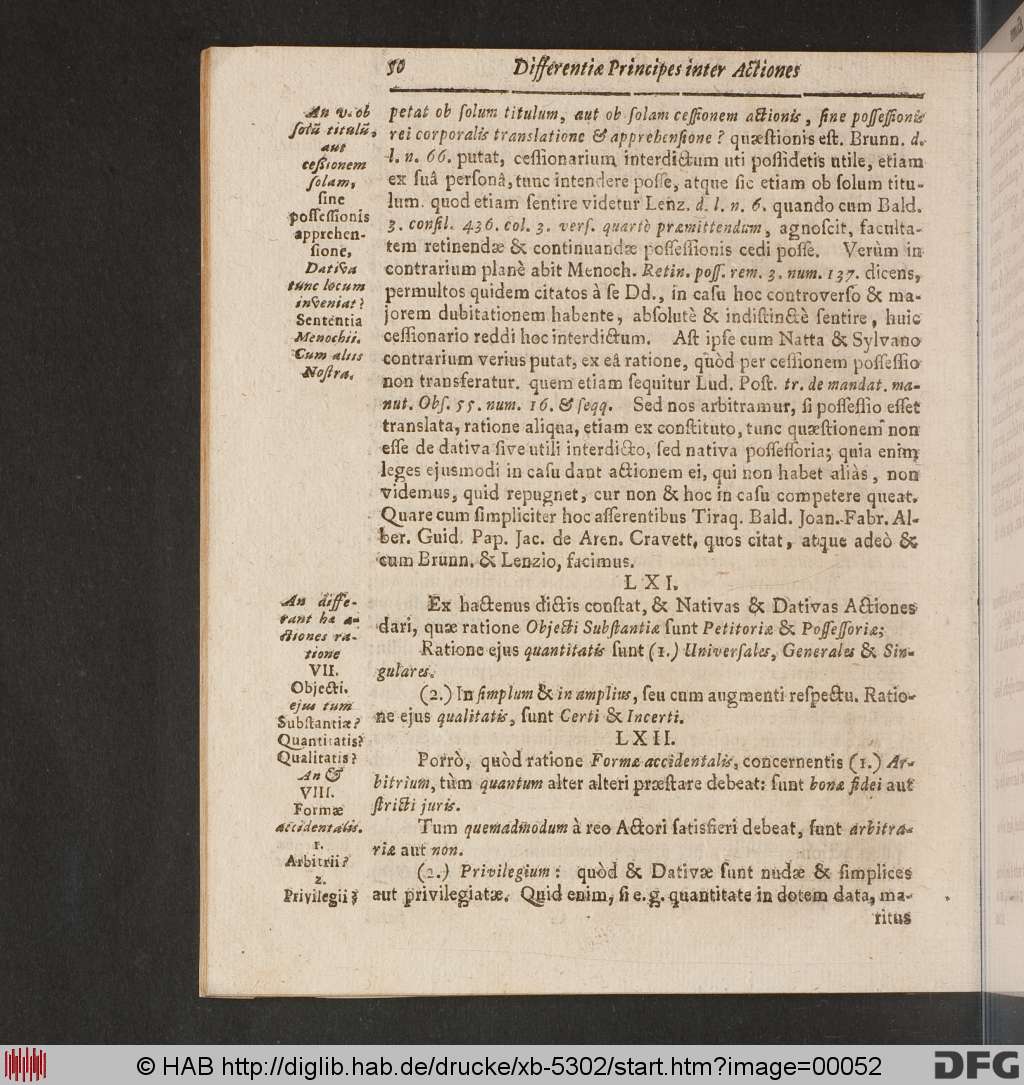 50 Differentiæ Principes inter Actiones
An v. ob
solũ titulũ,
aut
cessionem
solam,
sine
possessionis
apprehen-
sione,
Dativa
tunc locum
inveniat?
Sententia
Menochii.
Cum aliis
Nostra.
petat ob solum titulum, aut ob solam cessionem actionis, sine possessionis
rei corporalis translatione & apprehensione? quæstionis est. Brunn. d.
l. n. 66. putat, cessionarium interdictum uti possidetis utile, etiam
ex suâ personâ, tunc intendere posse, atque sic etiam ob solum titu-
lum. quod etiam sentire videtur Lenz. d. l. n. 6. quando cum Bald.
3. consil. 436. col. 3. vers. quartò præmittendum, agnoscit, faculta-
tem retinendæ & continuandæ possessionis cedi posse. Verùm in
contrarium planè abit Menoch. Retin. poss. rem. 3. num. 137. dicens,
permultos quidem citatos à se Dd., in casu hoc controverso & ma-
jorem dubitationem habente, absolutè & indistinctè sentire, huic
cessionario reddi hoc interdictum. Ast ipse cum Natta & Sylvano
contrarium verius putat, ex eâ ratione, quòd per cessionem possessio
non transferatur. quem etiam sequitur Lud. Post. tr. de mandat. ma-
nut. Obs. 55. num. 16. & seqq. Sed nos arbitramur, si possessio esset
translata, ratione aliqua, etiam ex constituto, tunc quæstionem non
esse de dativa sive utili interdicto, sed nativa possessoria; quia enim
leges ejusmodi in casu dant actionem ei, qui non habet aliàs, non
videmus, quid repugnet, cur non & hoc in casu competere queat.
Quare cum simpliciter hoc asserentibus Tiraq. Bald. Joan. Fabr. Al-
ber. Guid. Pap. Jac. de Aren. Cravett, quos citat, atque adeò &
cum Brunn. & Lenzio, facimus.
LXI.
An diffe-
rant hæ a-
ctiones ra-
tione
VII.
Objecti.
ejus tum
Substantiæ?
Quantitatis?
Qualitatis?
An &
VIII.
Formæ
accidentalis.
1.
Arbitrii?
2.
Privilegii?
Ex hactenus dictis constat, & Nativas & Dativas Actiones
dari, quæ ratione Objecti Substantiæ sunt Petitoriæ & Possessoriæ;
Ratione ejus quantitatis sunt (1.) Universales, Generales & Sin-
gulares.
(2.) In simplum & in amplius, seu cum augmenti respectu. Ratio-
ne ejus qualitatis, sunt Certi & Incerti.
LXII.
Porrò, quòd ratione Formæ accidentalis, concernentis (1.) Ar-
bitrium, tùm quantum alter alteri præstare debeat: sunt bonæ fidei aut
stricti juris.
Tum quemadmodum à reo Actori satisfieri debeat, sunt arbitra-
riæ aut non.
(2.) Privilegium: quòd & Dativæ sunt nudæ & simplices
aut privilegiatæ. Quid enim, si e. g. quantitate in dotem data, ma-
ritus
© HAB http://diglib.hab.de/drucke/xb-5302/start.htm?image=00052
DFG